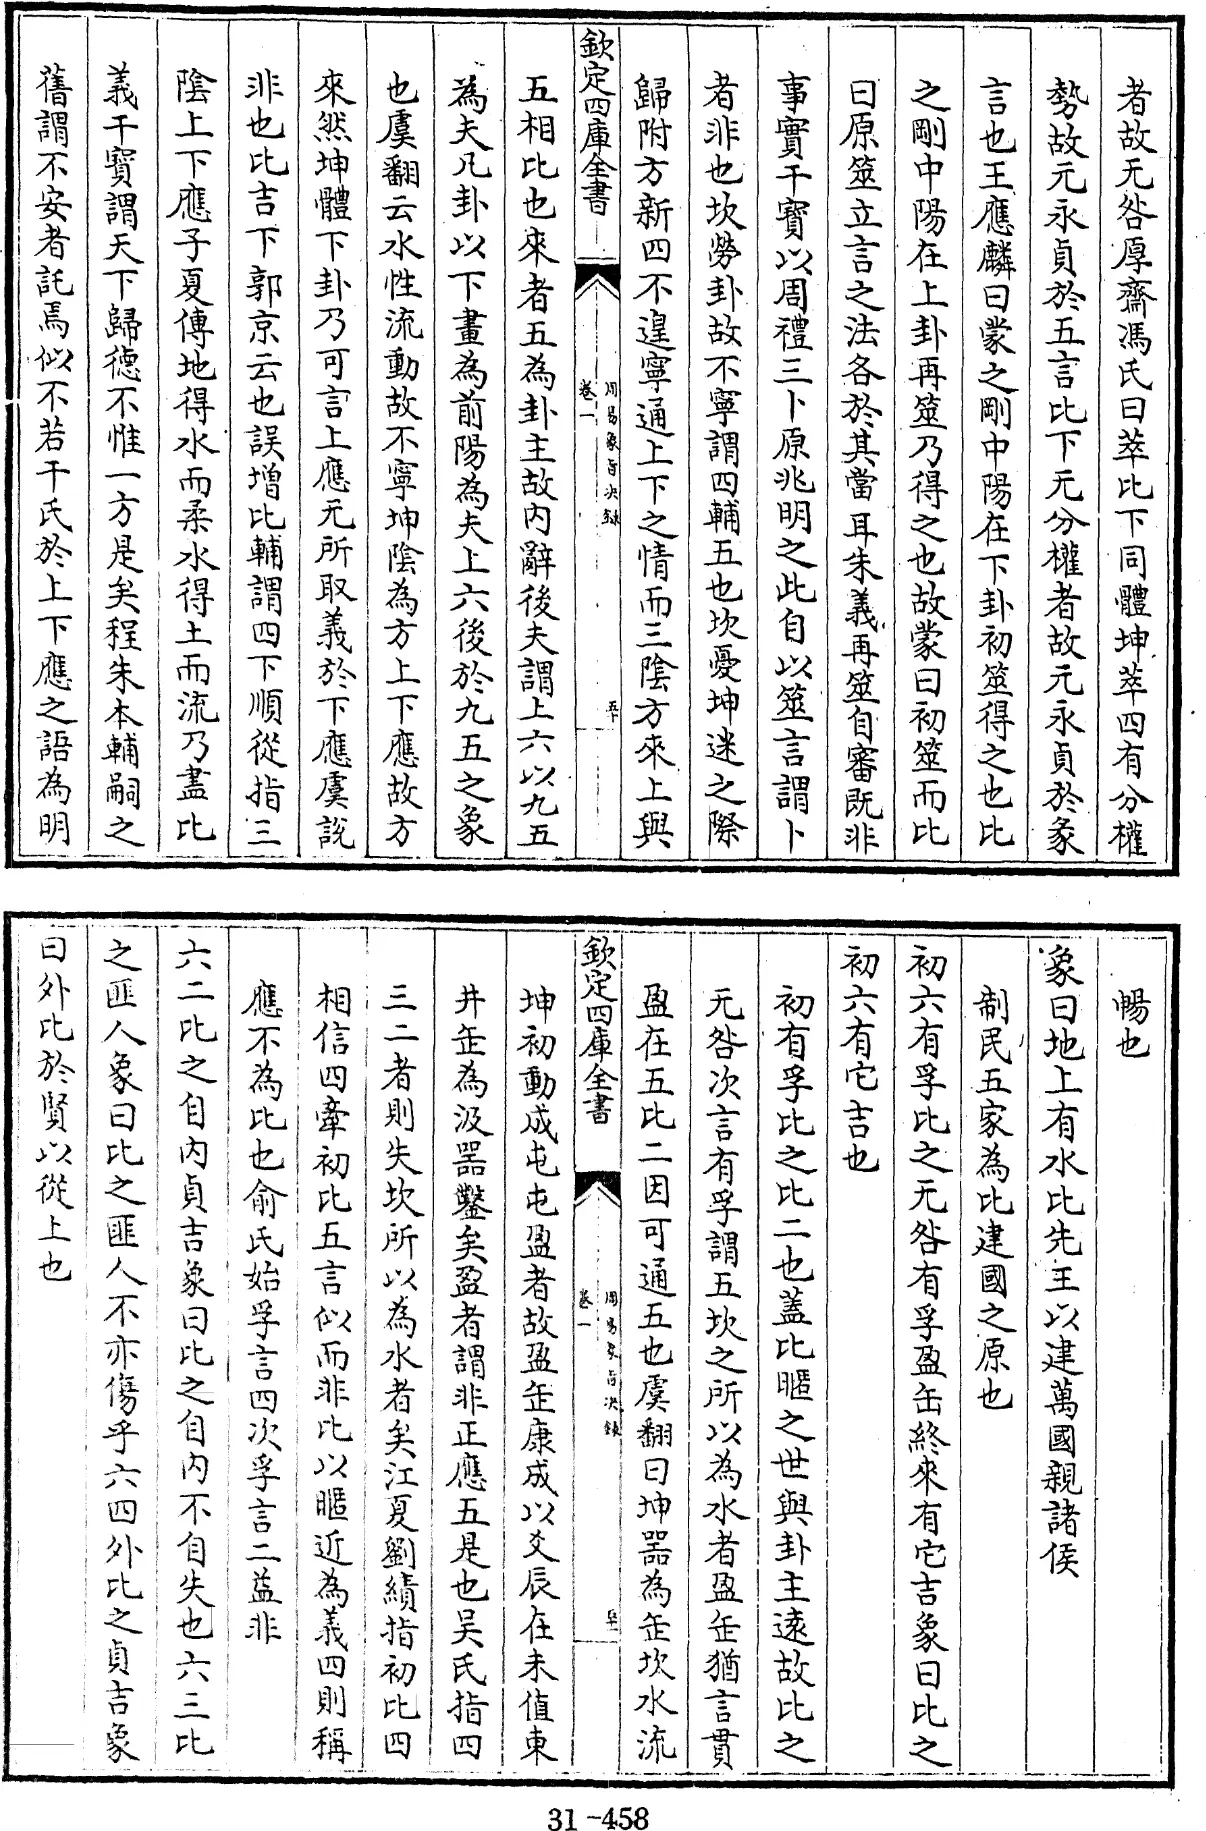 者故无咎厚齋馮氏曰萃比下同體坤萃四有分權
勢故元永貞於五言比下无分權者故元永貞於彖
言也王應麟曰蒙之剛中陽在下卦初筮得之也比
之剛中陽在上卦再筮乃得之也故蒙曰初筮而比
曰原筮立言之法各於其當耳朱義再筮自審既非
事實干寶以周禮三卜原兆明之此自以筮言謂卜
者非也坎勞卦故不寧謂四輔五也坎憂坤迷之際
歸附方新四不遑寧通上下之情而三陰方來上與
欽定四庫全書
周易象旨決錄
卷一
五相比也來者五為卦主故内辭後夫謂上六以九五
為夫凡卦以下畫為前陽為夫上六後於九五之象
也虞翻云水性流動故不寧坤陰為方上下應故方
來然坤體下卦乃可言上應无所取義於下應虞說
非也比吉下郭京云也誤增比輔謂四下順從指三
陰上下應子夏傳地得水而柔水得土而流乃盡比
義干寶謂天下歸德不惟一方是矣程朱本輔嗣之
舊謂不安者託焉似不若干氏於上下應之語為明
暢也
象曰地上有水比先王以建萬國親諸侯
制民五家為比建國之原也
初六有孚比之无咎有孚盈缶終來有它吉象曰比之
初六有它吉也
初有孚比之比二也蓋比暱之世與卦主遠故比之
无咎次言有孚謂五坎之所以為水者盈缶猶言貫
盈在五比二因可通五也虞翻曰坤器為缶坎水流
欽定四庫全書
周易象旨決錄
卷一
坤初動成屯屯盈者故盈缶康成以爻辰在未值東
井缶為汲器鑿矣盈者謂非正應五是也吳氏指四
三二者則失坎所以為水者矣江夏劉績指初比四
相信四牽初比五言似而非比以暱近為義四則稱
應不為比也俞氏始孚言四次孚言二益非
六二比之自内貞吉象曰比之自内不自失也六三比
之匪人象曰比之匪人不亦傷乎六四外比之貞吉象
曰外比於賢以從上也
31-458